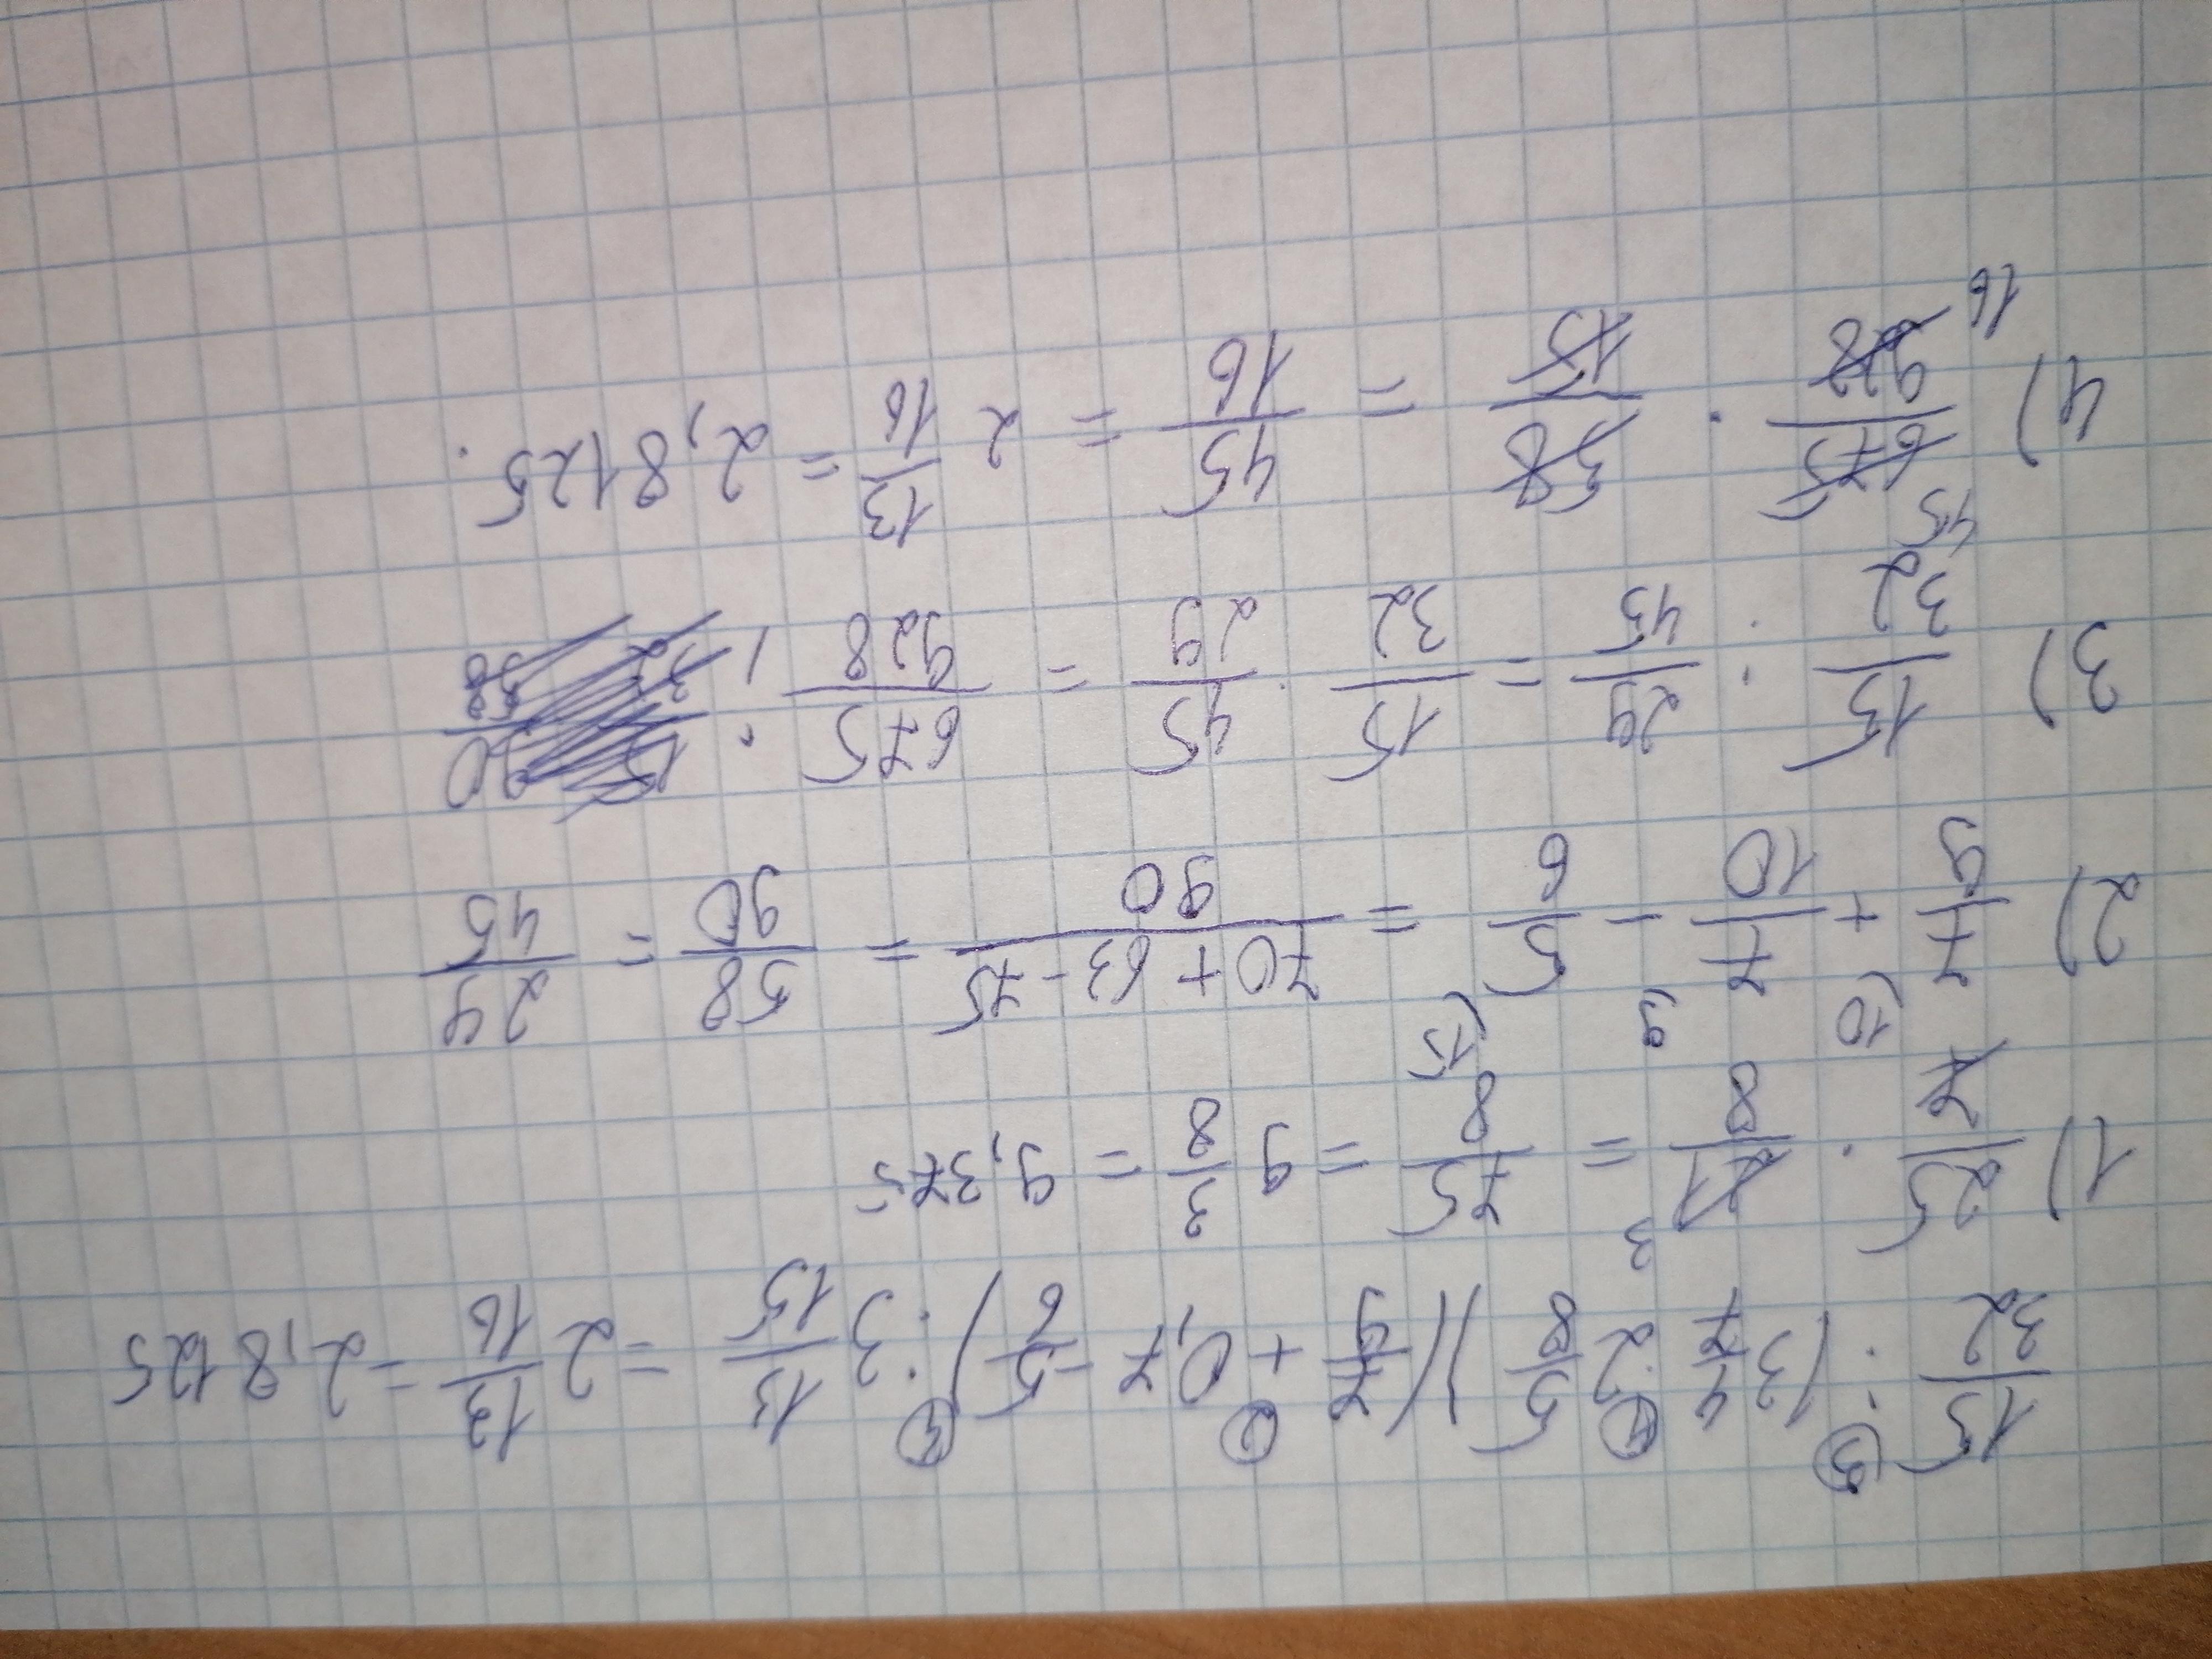 15/32 : (3 4/7 · 2 5/8) (7/9 + 0,7 - 5/6) : 3 13/15 = 2 13/16 = 2,8125
1) 25/7 · 21/8 = 75/8 = 9 3/8 = 9,375
2) 7/9 + 7/10 - 5/6 = 70+63-75/90 = 58/90 = 29/45
3) 15/32 : 29/45 = 15/32 · 45/29 = 675/928
4) 675/928 · 58/15 = 45/16 = 2 13/16 = 2,8125.